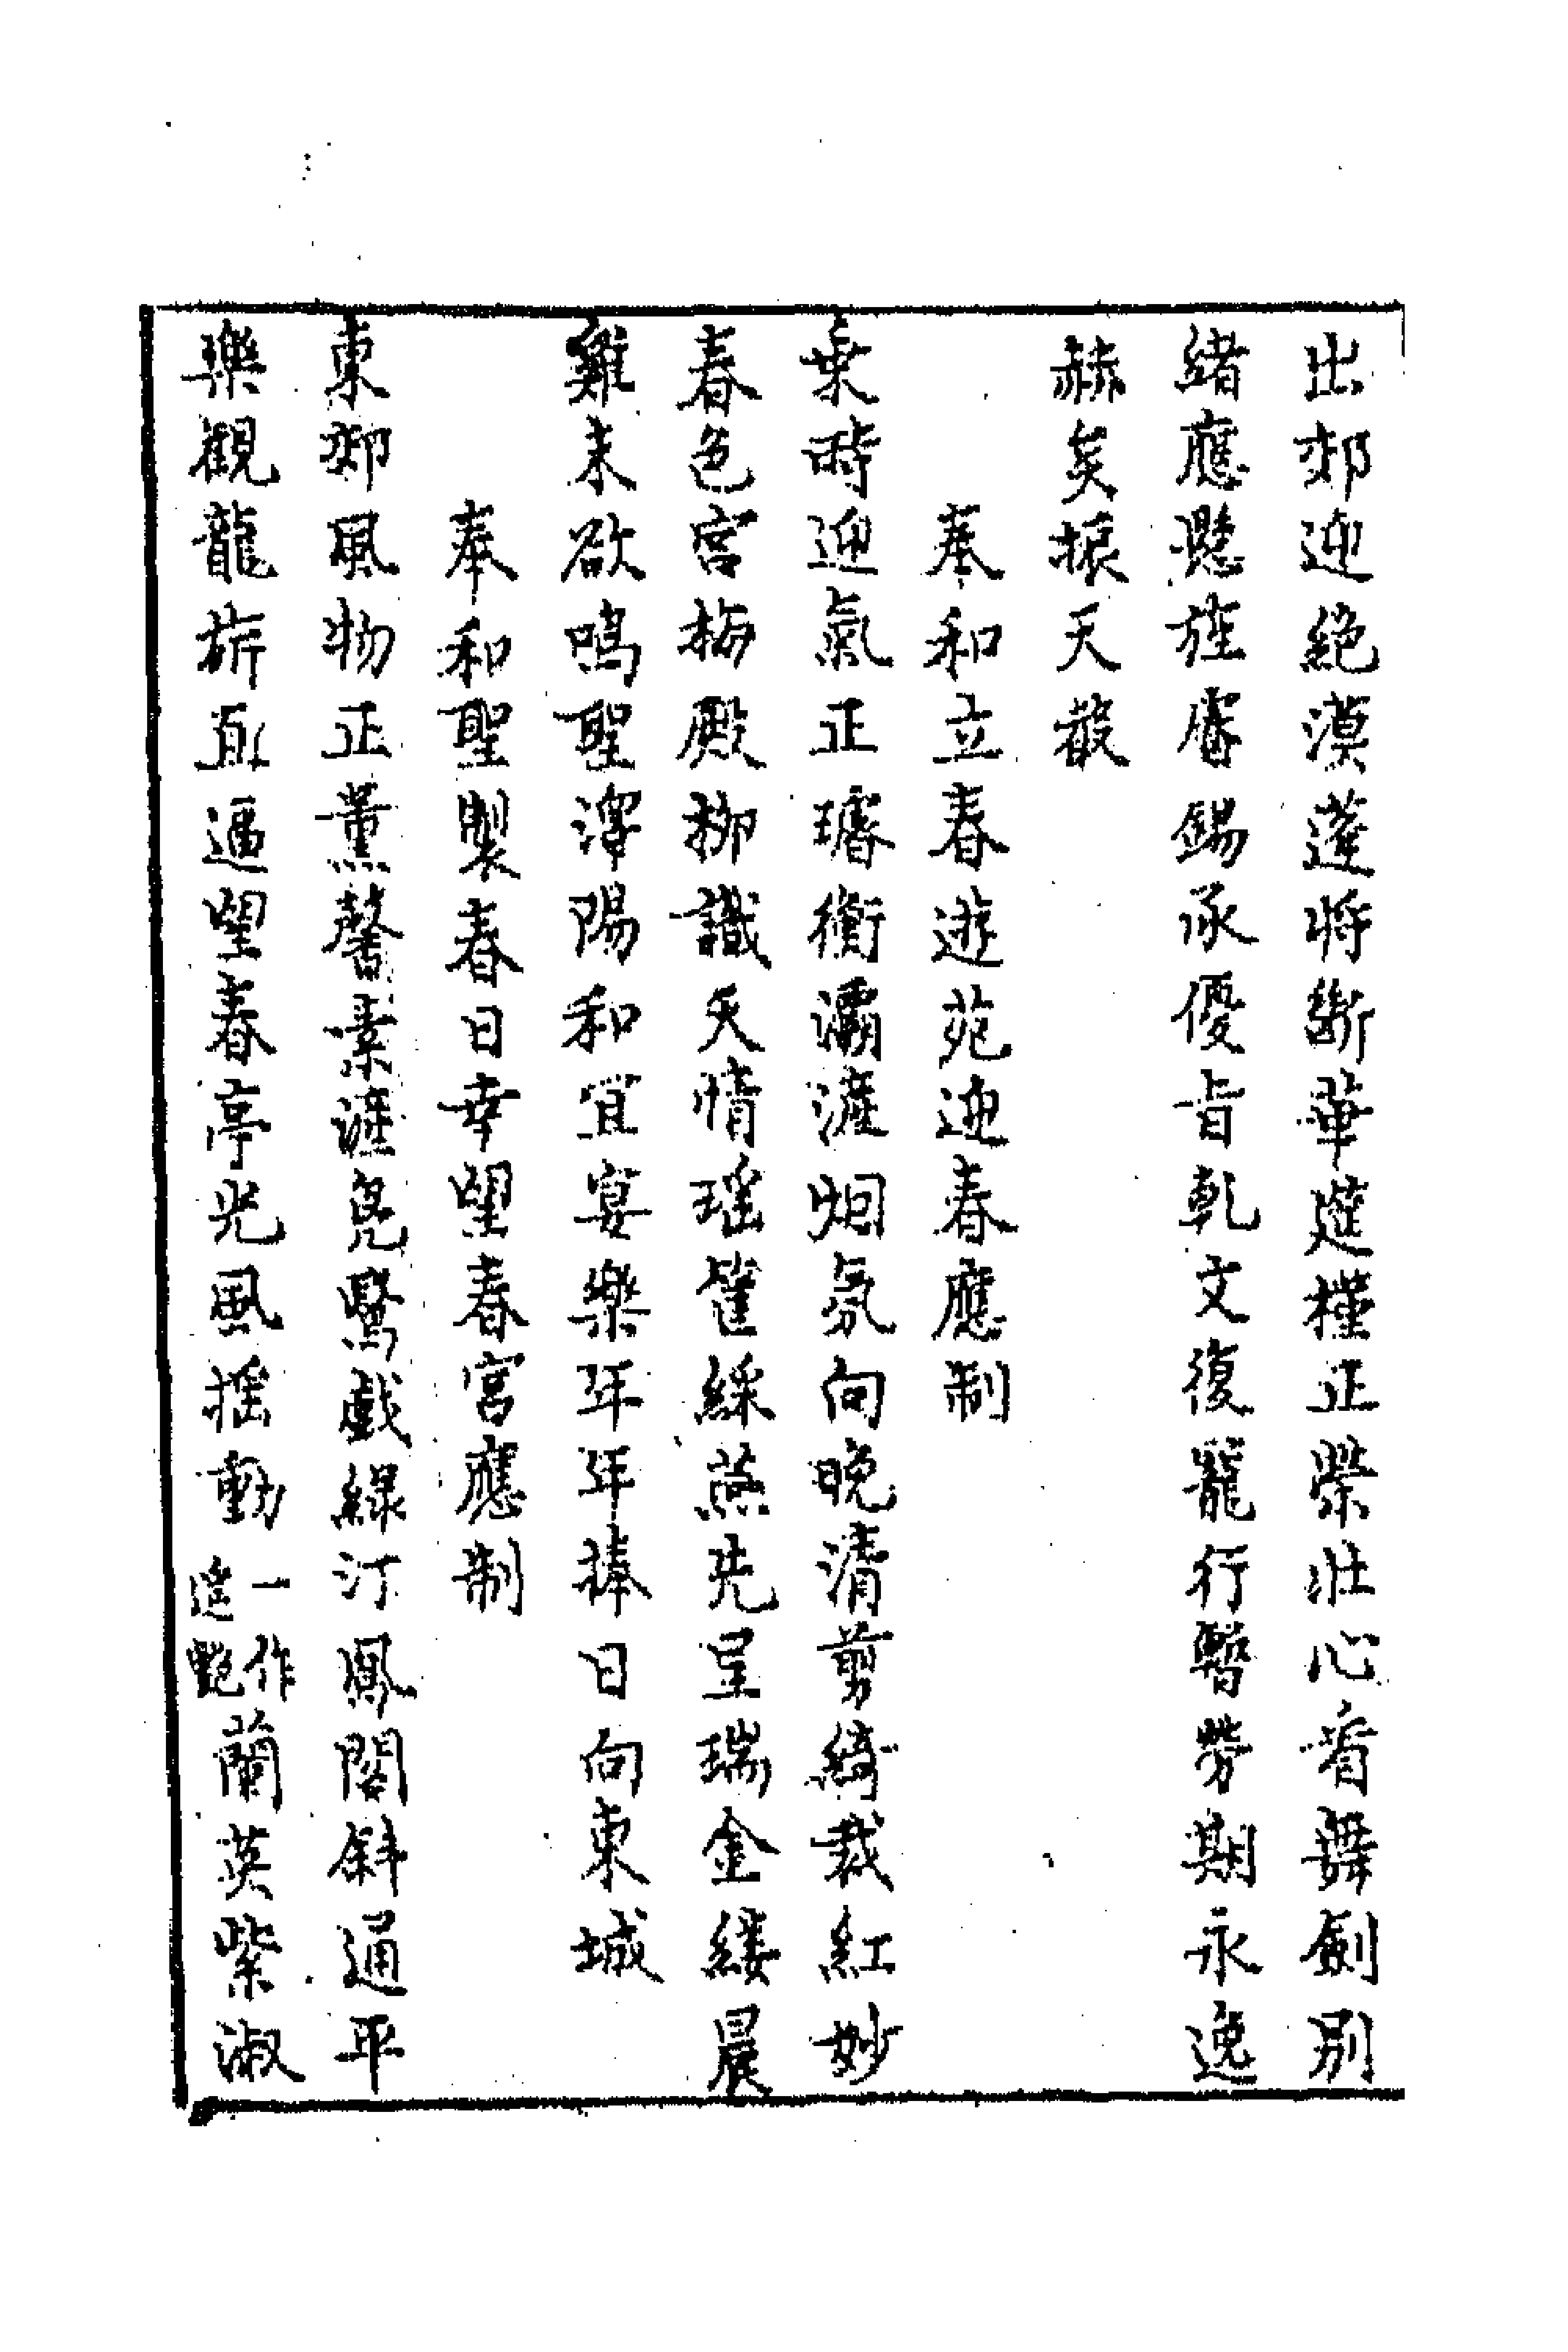 出郊迎絶漠蓬將斷華筵槿正榮壯心看舞劍别
緒應懸旌睿錫承優旨乾文復寵行暫勞期永逸
赫矣振天聲
奉和立春遊苑迎春應制
乗時迎氣正璿衡灞滻烟氛向晚清剪綺裁紅妙
春色宫梅殿柳識天情瑶筐綵燕先呈瑞金縷晨
雞未欲鳴聖澤陽和宜宴樂年年捧日向東城
奉和聖製春日幸望春宫應制
東郊風物正薰馨素滻鳧鷖戲綠汀鳳閣斜通平
樂觀龍旂直逼望春亭光風揺動一作遥艷蘭英紫淑